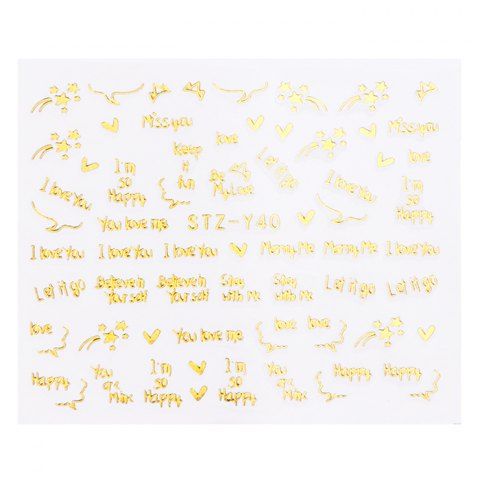 Miss you
Miss you
love
love
Keep
it
fun
Let it go
I'm
so
Happy
Be
My Love
I'm
so
Happy
I love You
I love You
You love me
STZ-Y40
I love You
I love You
I love You
Marry Me
Marry Me
I love You
Let it go
Believe in
Yourself
Believe in
Yourself
Stay
with Me
Stay
with Me
Let it go
Let it go
love
You love me
love
love
Happy
You
are
Mine
I'm
so
Happy
I'm
so
Happy
You
are
Mine
Happy
Happy